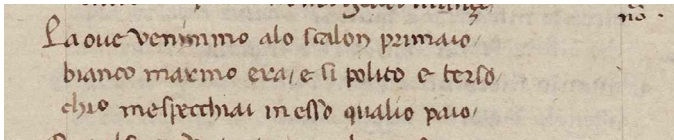 La oue venimmo alo scalon primaio/
bianco marmo era/ e si polito e terso/
chio mespecchiai in esso qualio paio/